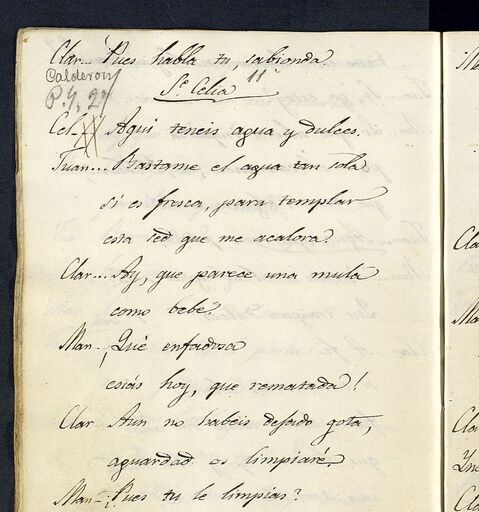 Clar... Pues habla tu, sabionda.
Calderon
P. 4, 27
Sᵉ Celia 11ª
Cel-- Aqui teneis agua y dulces.
Juan... Bastame el agua tan sola
si es fresca, para templar
esta sed que me acalora.
Clar... Ay, que parece una mula
como bebe.
Man-- ¡Qué enfadosa
estás hoy, que rematada!
Clar Aun no habeis dejado gota,
aguardad os limpiaré.
Man-- ¿Pues tu le limpias?
Ma
Cla
Ma
Cla
Cla
Yne
Cla